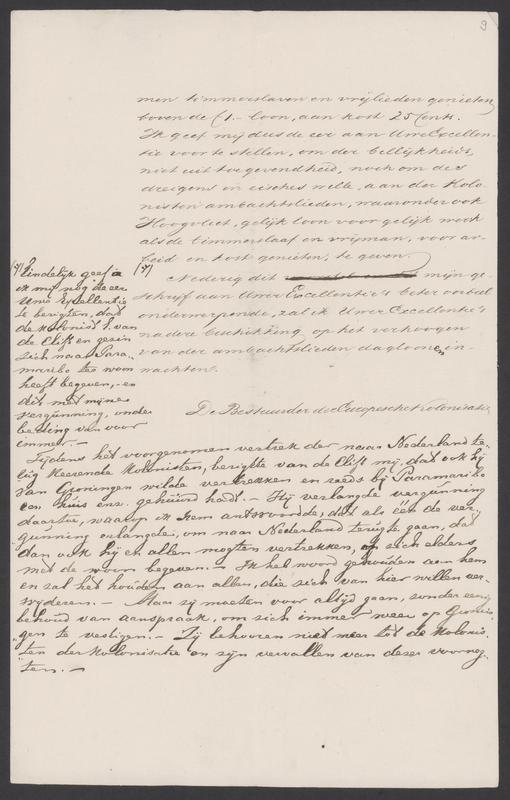 9
men timmerslaven en vrijlieden genieten
boven de f1.- loon, aan kost 25 Cents.
Ik geef mij dus de eer aan Uwe Excellen-
tie voor te stellen, om der billijkheids,
niet uit toegevendheid, noch om des
dreigens en eisches wille, aan der Kolo-
nisten ambachtslieden, waaronder ook
Hoogvliet, gelijk loon voor gelijk werk
als de timmerslaaf en vrijman, voor ar-
beid en kost genieten, te geven.
Nederig dit mijn ge-
schrijf aan Uwer Excellentie's beter oordeel
onderwerpende, zal ik Uwer Excellentie's
nadere beschikking op het verhoogen
van der ambachtslieden dagloonen in-
wachten.
De Bestuurder der Europesche Kolonisatie
Eindelijk geef
ik mij nog de eer
Uwe Excellentie
te berigten, dat
de Kolonist J. van
de Clift en gezin
zich naar Para-
maribo te woon
heeft begeven, en
dit met mijne
vergunning, onder
bepaling van voor
immer.-
Tijdens het voorgenomen vertrek der naar Nederland te-
rug keerende Kolonisten, berigtte van de Clift mij, dat ook hij
van Groningen wilde vertrekken en reeds bij Paramaribo
een huis enz. gehuurd hadt.- Hij verlangde vergunning
daartoe, waarop ik hem antwoordde, dat als een de ver-
gunning erlangde, om naar Nederland terug te gaan, dat
dan ook hij en allen mogten vertrekken, zich elders
met de woon begeven.- Ik hel woord gehouden aan hem
en zal het houden aan allen, die zich van hier willen ver-
wijderen.- Maar zij moeten voor altijd gaan, zonder eenig
behoud van aanspraak, om zich immer weer op Gronin-
gen te vestigen.- Zij behooren niet meer tot de Kolonis-
ten der Kolonisatie en zijn vervallen van dezer voorreg-
ten.-